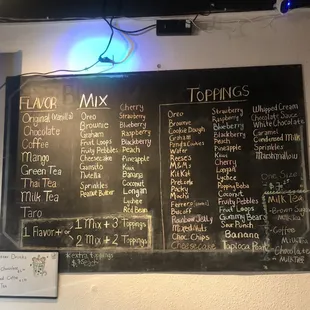 FLAVOR
Original (Vanilla)
Chocolate
Coffee
Mango
Green Tea
Thai Tea
Milk Tea
Taro
MIX
Oreo
Brownie
Graham
Fruit Loops
Fruity Pebbles
Cheesecake
Nutella
Sprinkles
Peanut Butter
Cherry
Strawberry
Blueberry
Raspberry
Blackberry
Peach
Pineapple
Kiwi
Banana
Coconut
Longan
Lychee
Red Bean
1 Flavor +
1 Mix + 3 Toppings
2 Mix + 2 Toppings
TOPPINGS
Oreo
Brownie
Cookie Dough
Graham
Wafer
Reeses
M&M's
Kit Kat
Pretzels
Pocky
Mochi
Ferrero
Biscoff
Rainbow Jelly
Mixed Nuts
Choc. Chips
Cheesecake
Strawberry
Raspberry
Blueberry
Blackberry
Peach
Pineapple
Kiwi
Cherry
Longan
Lychee
Popping Boba
Coconut
Fruity Pebbles
Fruit Loops
Gummy Bears
Sour Punch
Banana
Tapioca Pearl
Whipped Cream
Chocolate Sauce
White Chocolate
Caramel
Condensed Milk
Sprinkles
Marshmallow
Milk Tea
Coffee
Milk Tea
Milk Tea
extra toppings